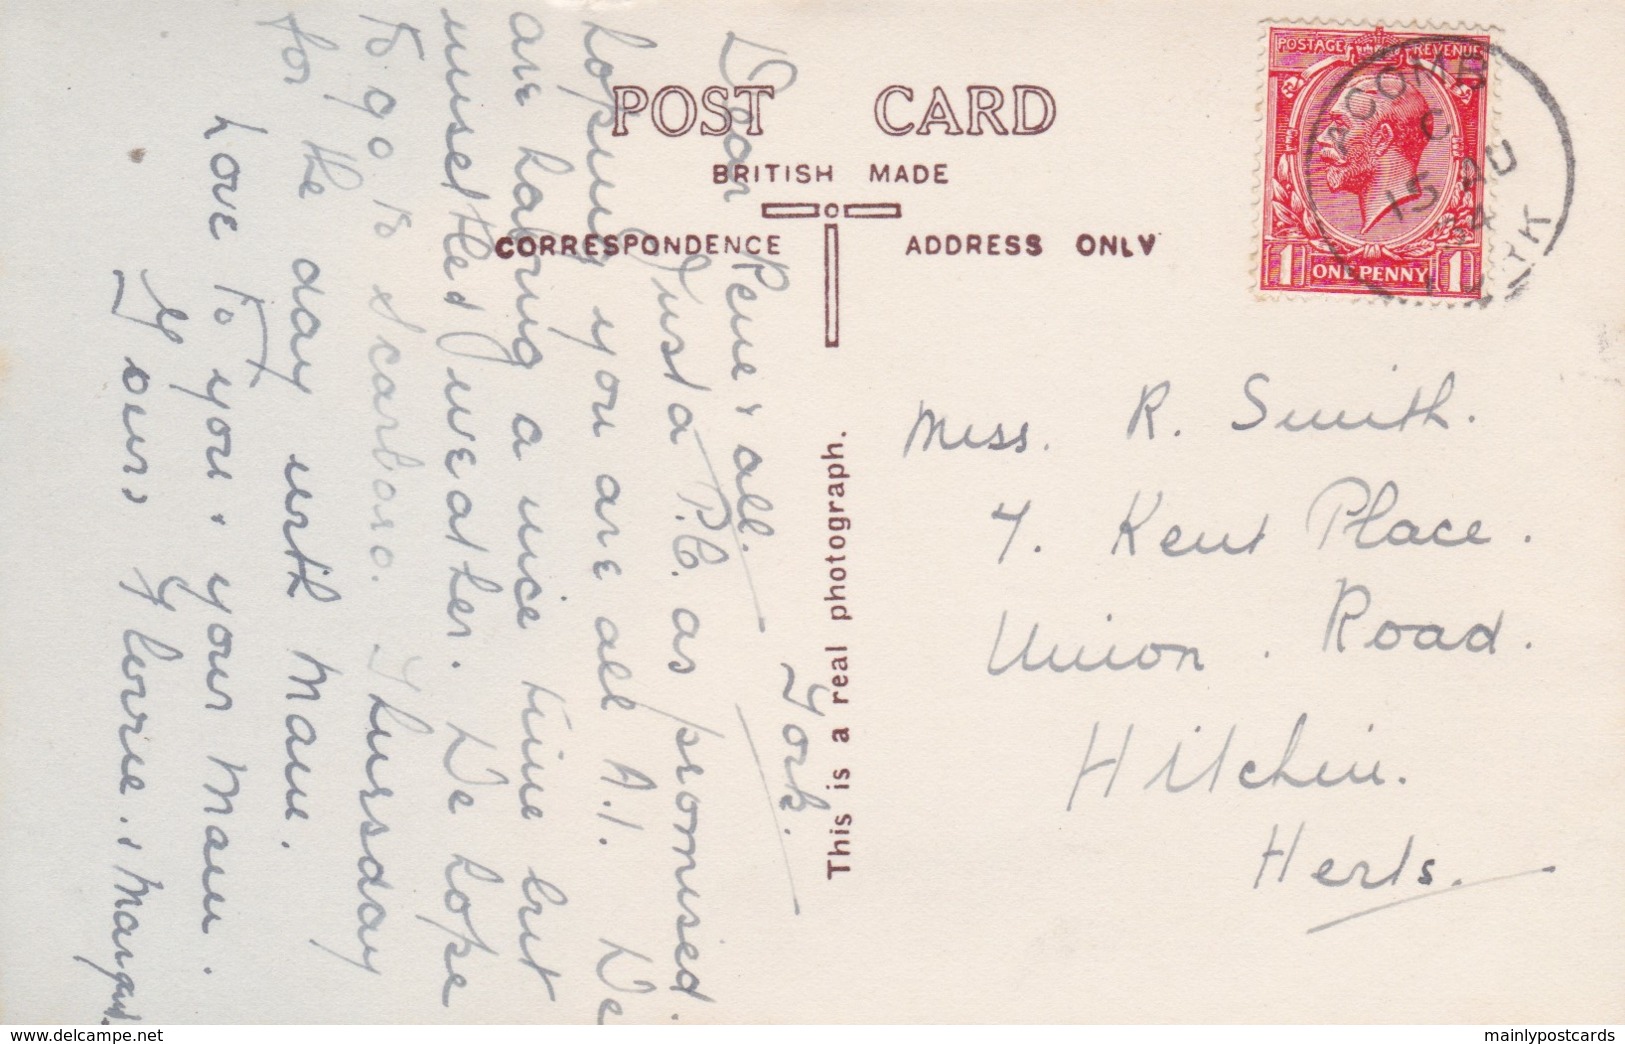 POST CARD
BRITISH MADE
CORRESPONDENCE
ADDRESS ONLY
This is a real photograph.
POSTAGE REVENUE
1 ONE PENNY 1
ACOMB
C
15 AU
34
YORK
York.
Dear Rene & all.
Just a P.C. as promised.
hoping you are all A.1. We
are having a nice time but
unsettled weather. We hope
to go to Scarboro. Thursday
for the day with Mam.
Love to you & your Mam.
Yours Florrie. & Margt.
Miss. R. Smith.
7. Kent Place.
Union. Road.
Hitchin.
Herts.
www.delcampe.net
mainlypostcards